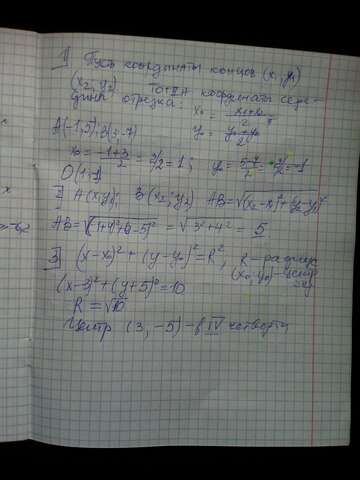 1) Пусть координаты концов (x₁, y₁)
(x₂, y₂) тогда координаты сере-
дины отрезка: x₀ = (x₁+x₂)/2
A(-1, 5), B(3, -7) y₀ = (y₁+y₂)/2
x₀ = (-1+3)/2 = 2/2 = 1; y₀ = (5-7)/2 = -2/2 = -1
O(1, -1)
2) A(x₁, y₁) B(x₂, y₂) AB = √(x₂-x₁)²+(y₂-y₁)²
AB = √(1+4)²+(-5)² = √3²+4² = 5
3) (x-x₀)² + (y-y₀)² = R², R - радиус
(x₀, y₀) - центр
(x-3)² + (y+5)² = 10
R = √10
Центр (3, -5) - в IV четверти